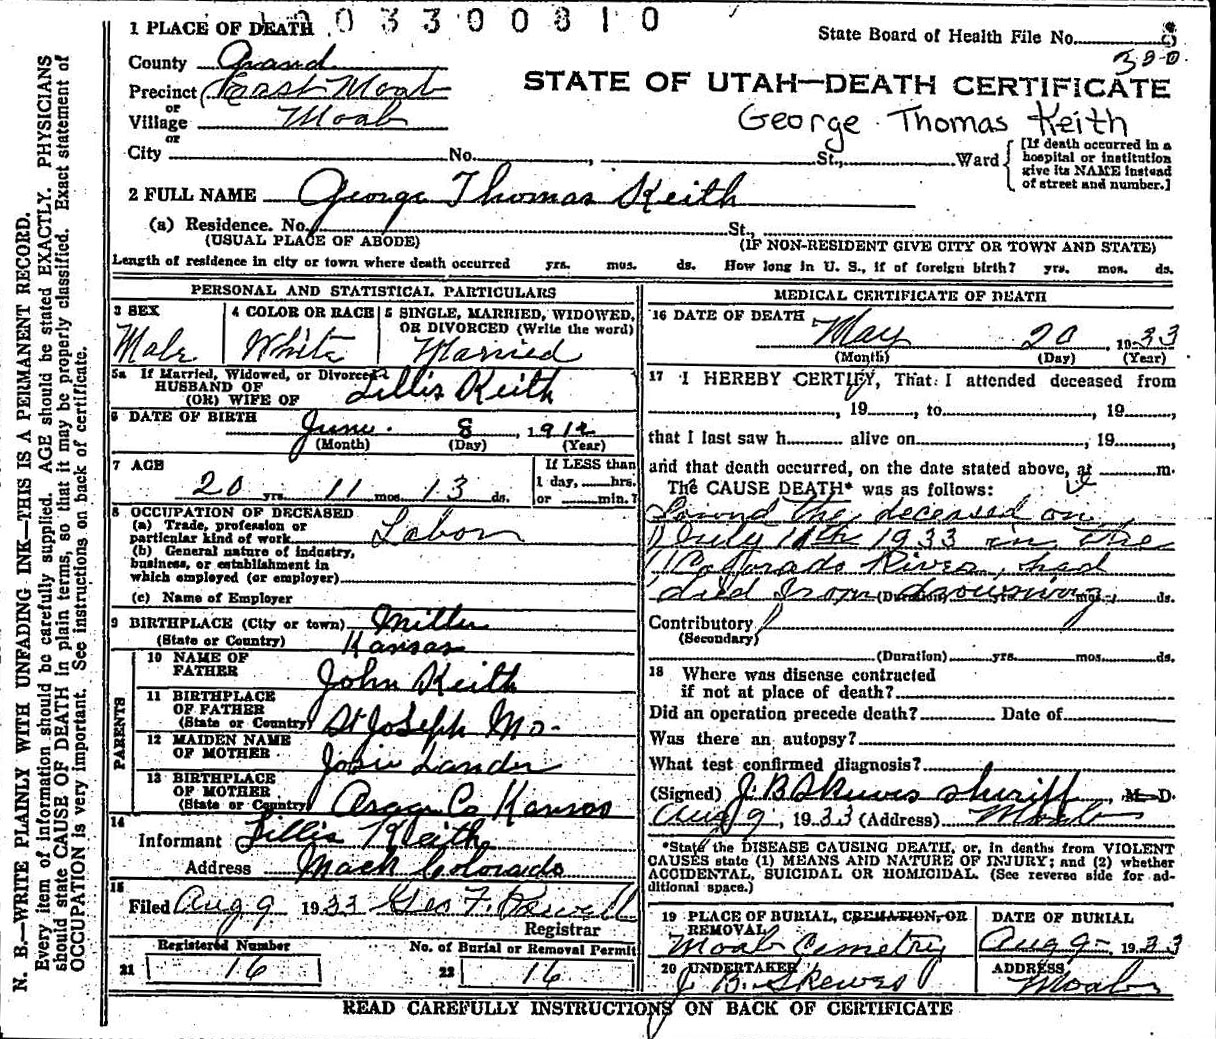 003300810
1 PLACE OF DEATH
State Board of Health File No. 8
390
County Grand
STATE OF UTAH—DEATH CERTIFICATE
Precinct East Moab
or
Village Moab
George Thomas Keith
or
City No. , St., Ward
[If death occurred in a
hospital or institution
give its NAME instead
of street and number.]
2 FULL NAME George Thomas Keith
(a) Residence. No. St.,
(USUAL PLACE OF ABODE) (IF NON-RESIDENT GIVE CITY OR TOWN AND STATE)
Length of residence in city or town where death occurred yrs. mos. ds. How long in U. S., if of foreign birth? yrs. mos. ds.
PERSONAL AND STATISTICAL PARTICULARS
3 SEX 4 COLOR OR RACE 5 SINGLE, MARRIED, WIDOWED,
OR DIVORCED (Write the word)
Male White Married
5a If Married, Widowed, or Divorced
HUSBAND OF
(OR) WIFE OF Lillis Keith
6 DATE OF BIRTH
June 8, 1912
(Month) (Day) (Year)
7 AGE If LESS than
1 day, hrs.
20 yrs. 11 mos. 13 ds. or min.?
8 OCCUPATION OF DECEASED
(a) Trade, profession or
particular kind of work Labor
(b) General nature of industry,
business, or establishment in
which employed (or employer)
(c) Name of Employer
9 BIRTHPLACE (City or town) Miller
(State or Country) Kansas
PARENTS
10 NAME OF
FATHER John Keith
11 BIRTHPLACE
OF FATHER
(State or Country) St Joseph Mo-
12 MAIDEN NAME
OF MOTHER Josie Lander
13 BIRTHPLACE
OF MOTHER
(State or Country) Osage Co Kansas
14
Informant Lillis Keith
Address Mack Colorado
15
Filed Aug 9 1933 Geo F. Powell
Registrar
Registered Number No. of Burial or Removal Permit
21 16 22 16
MEDICAL CERTIFICATE OF DEATH
16 DATE OF DEATH
May 20 1933
(Month) (Day) (Year)
17 I HEREBY CERTIFY, That I attended deceased from
, 19 , to , 19 ,
that I last saw h alive on , 19 ,
and that death occurred, on the date stated above, at m.
The CAUSE DEATH* was as follows:
found the deceased on
July 11th 1933 in the
Colorado River, had
died from drowning
(Duration) yrs. mos. ds.
Contributory
(Secondary)
(Duration) yrs. mos. ds.
18 Where was disease contracted
if not at place of death?
Did an operation precede death? Date of
Was there an autopsy?
What test confirmed diagnosis?
(Signed) J. B Skewes Sheriff, M. D.
Aug 9, 1933 (Address) Moab
*State the DISEASE CAUSING DEATH, or, in deaths from VIOLENT
CAUSES state (1) MEANS AND NATURE OF INJURY; and (2) whether
ACCIDENTAL, SUICIDAL OR HOMICIDAL. (See reverse side for ad-
ditional space.)
19 PLACE OF BURIAL, CREMATION, OR
REMOVAL
Moab Cemetry
DATE OF BURIAL
Aug 9- 1933
20 UNDERTAKER
J. B. Skewes
ADDRESS
Moab
READ CAREFULLY INSTRUCTIONS ON BACK OF CERTIFICATE
N. B.—WRITE PLAINLY WITH UNFADING INK—THIS IS A PERMANENT RECORD.
Every item of information should be carefully supplied. AGE should be stated EXACTLY. PHYSICIANS
should state CAUSE OF DEATH in plain terms, so that it may be properly classified. Exact statement of
OCCUPATION is very important. See instructions on back of certificate.